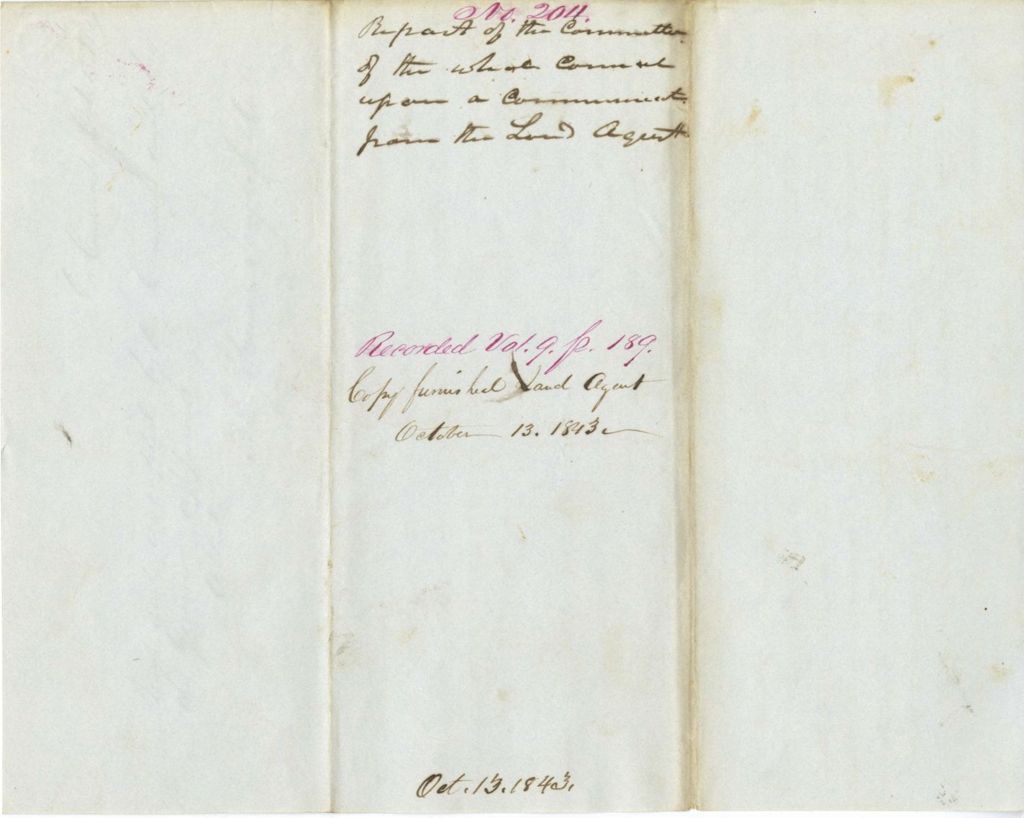 No. 204.
Report of the Committee
of the whole Council
upon a Communicat.
from the Land Agent
Recorded Vol. 9. p. 189.
Copy furnished Land Agent
October 13. 1843
Oct. 13. 1843.